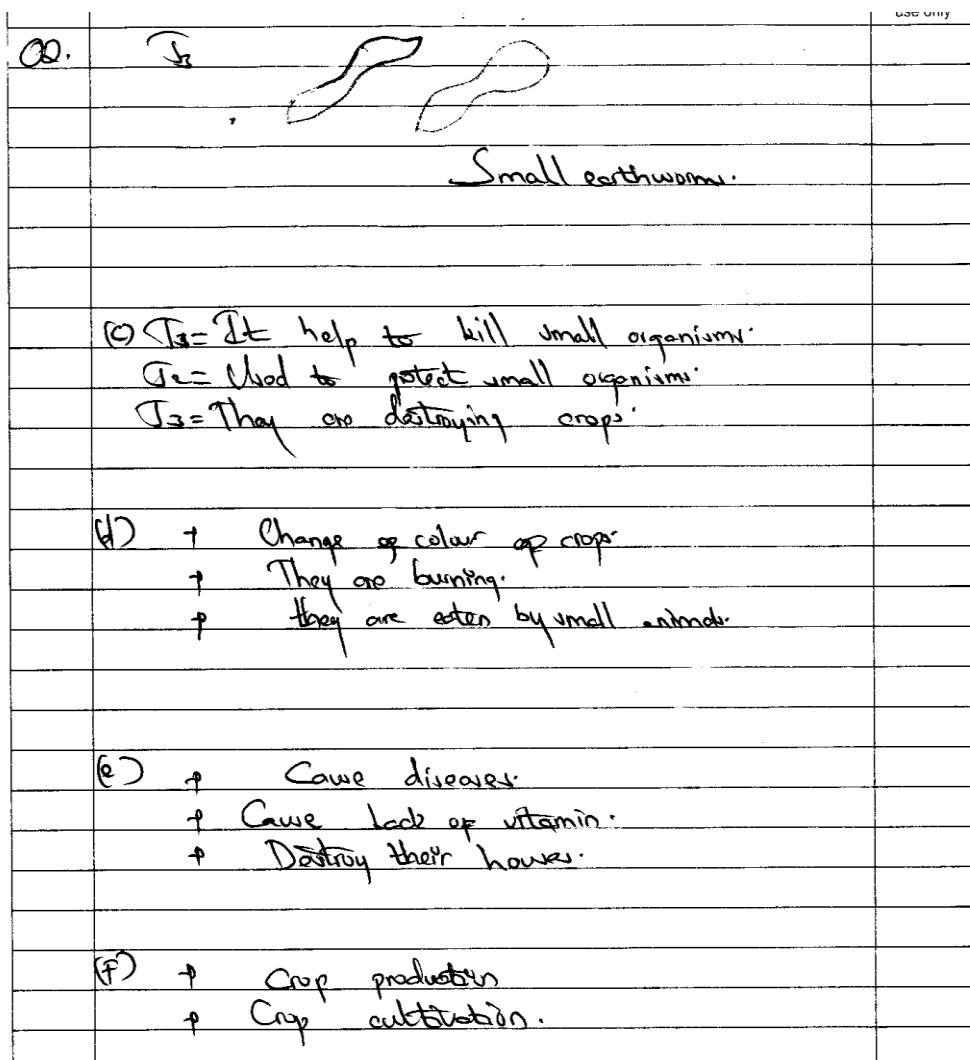 use only
02. J3
Small earthworms.
(c) J1 = It help to kill small organisms.
J2 = Used to protect small organisms.
J3 = They are destroying crops.
(d) + Change of colour of crops.
+ They are burning.
+ they are eaten by small animals.
(e) + Cause diseases.
+ Cause Lack of vitamin.
+ Destroy their houses.
(f) + Crop production
+ Crop cultivation.